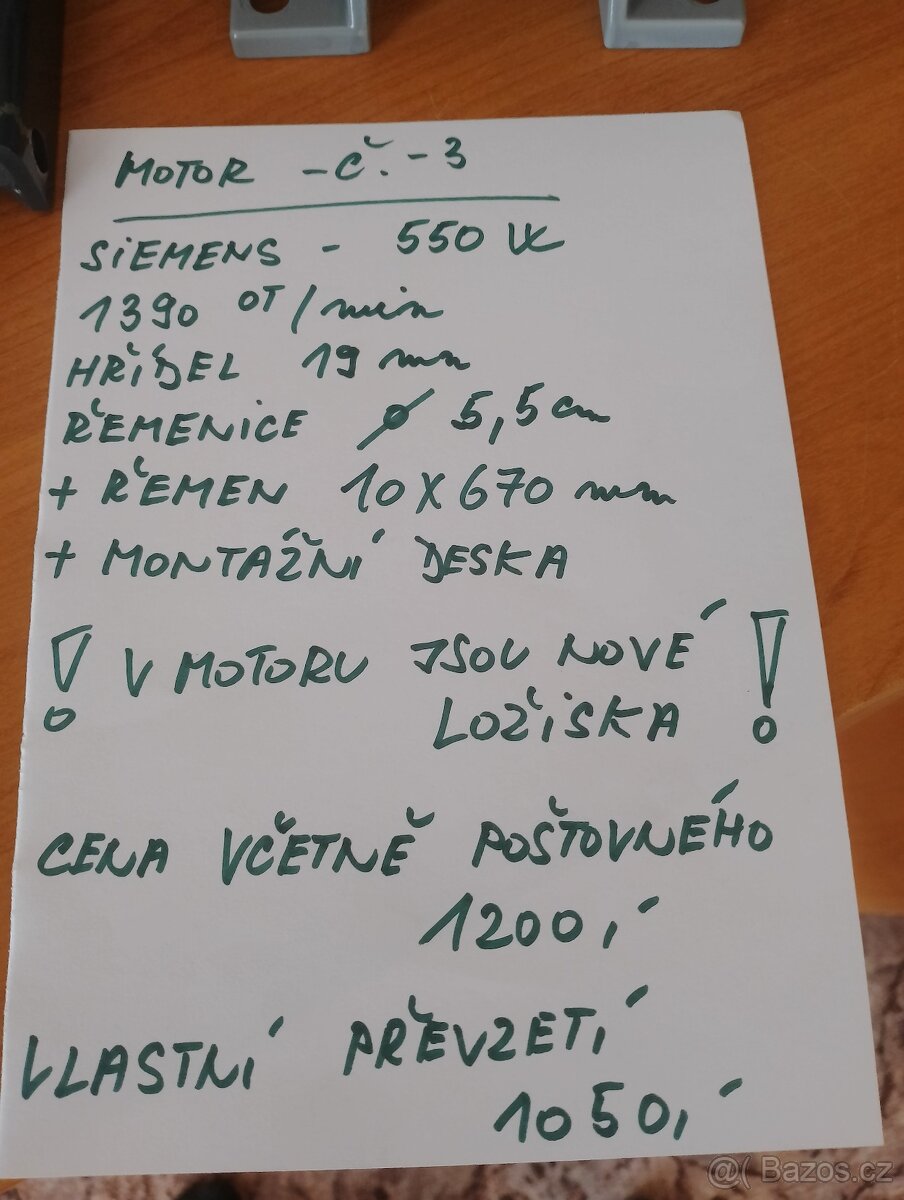 MOTOR - č. - 3
SIEMENS - 550 W
1390 OT/min
HŘÍDEL 19 mm
ŘEMENICE ø 5,5 cm
+ ŘEMEN 10 X 670 mm
+ MONTÁŽNÍ DESKA
! V MOTORU JSOU NOVÉ !
LOŽISKA
CENA VČETNĚ POŠTOVNÉHO
1200,-
VLASTNÍ PŘEVZETÍ
1050,-
@( Bazos.cz